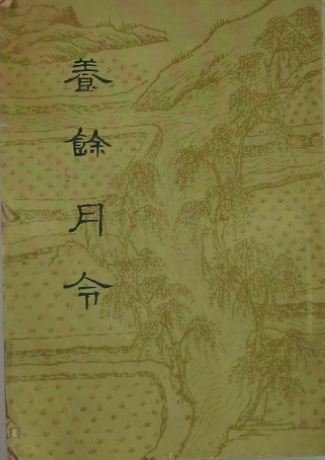 養餘月令